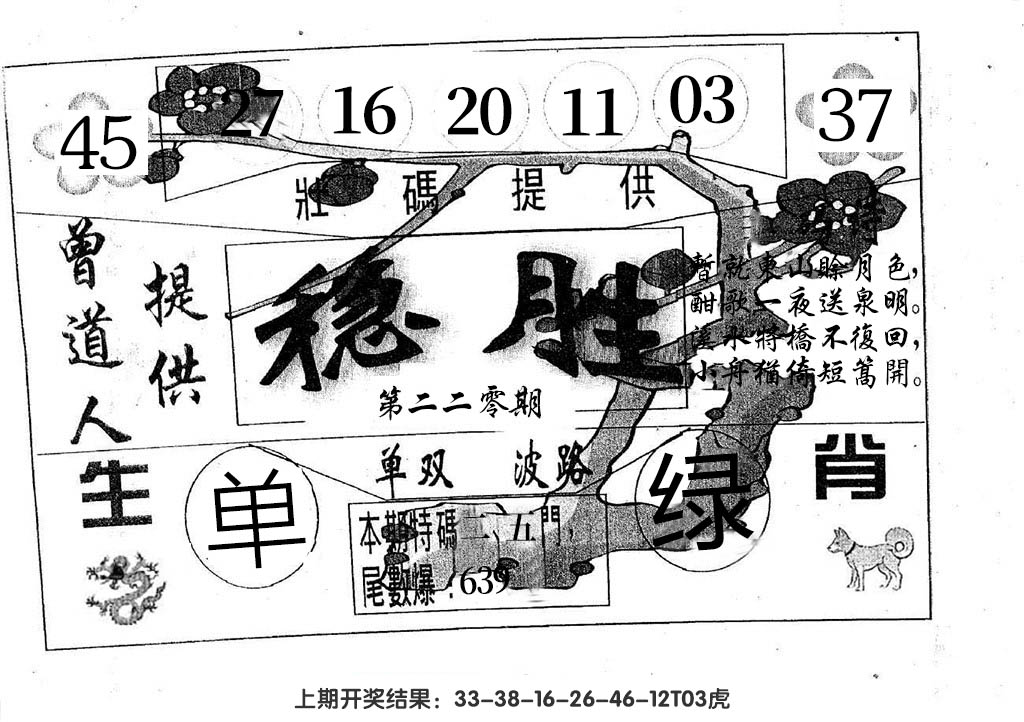 45 27 16 20 11 03 37
壯碼提供
曾道人
提供
稳胜
第二二零期
特
暫就東山賒月色，
酣歌一夜送泉明。
溪水將橋不復回，
小舟猶倚短篙開。
单双 波路
生肖
单
绿
本期特碼二、五門，
尾數爆：639
上期开奖结果：33-38-16-26-46-12T03虎